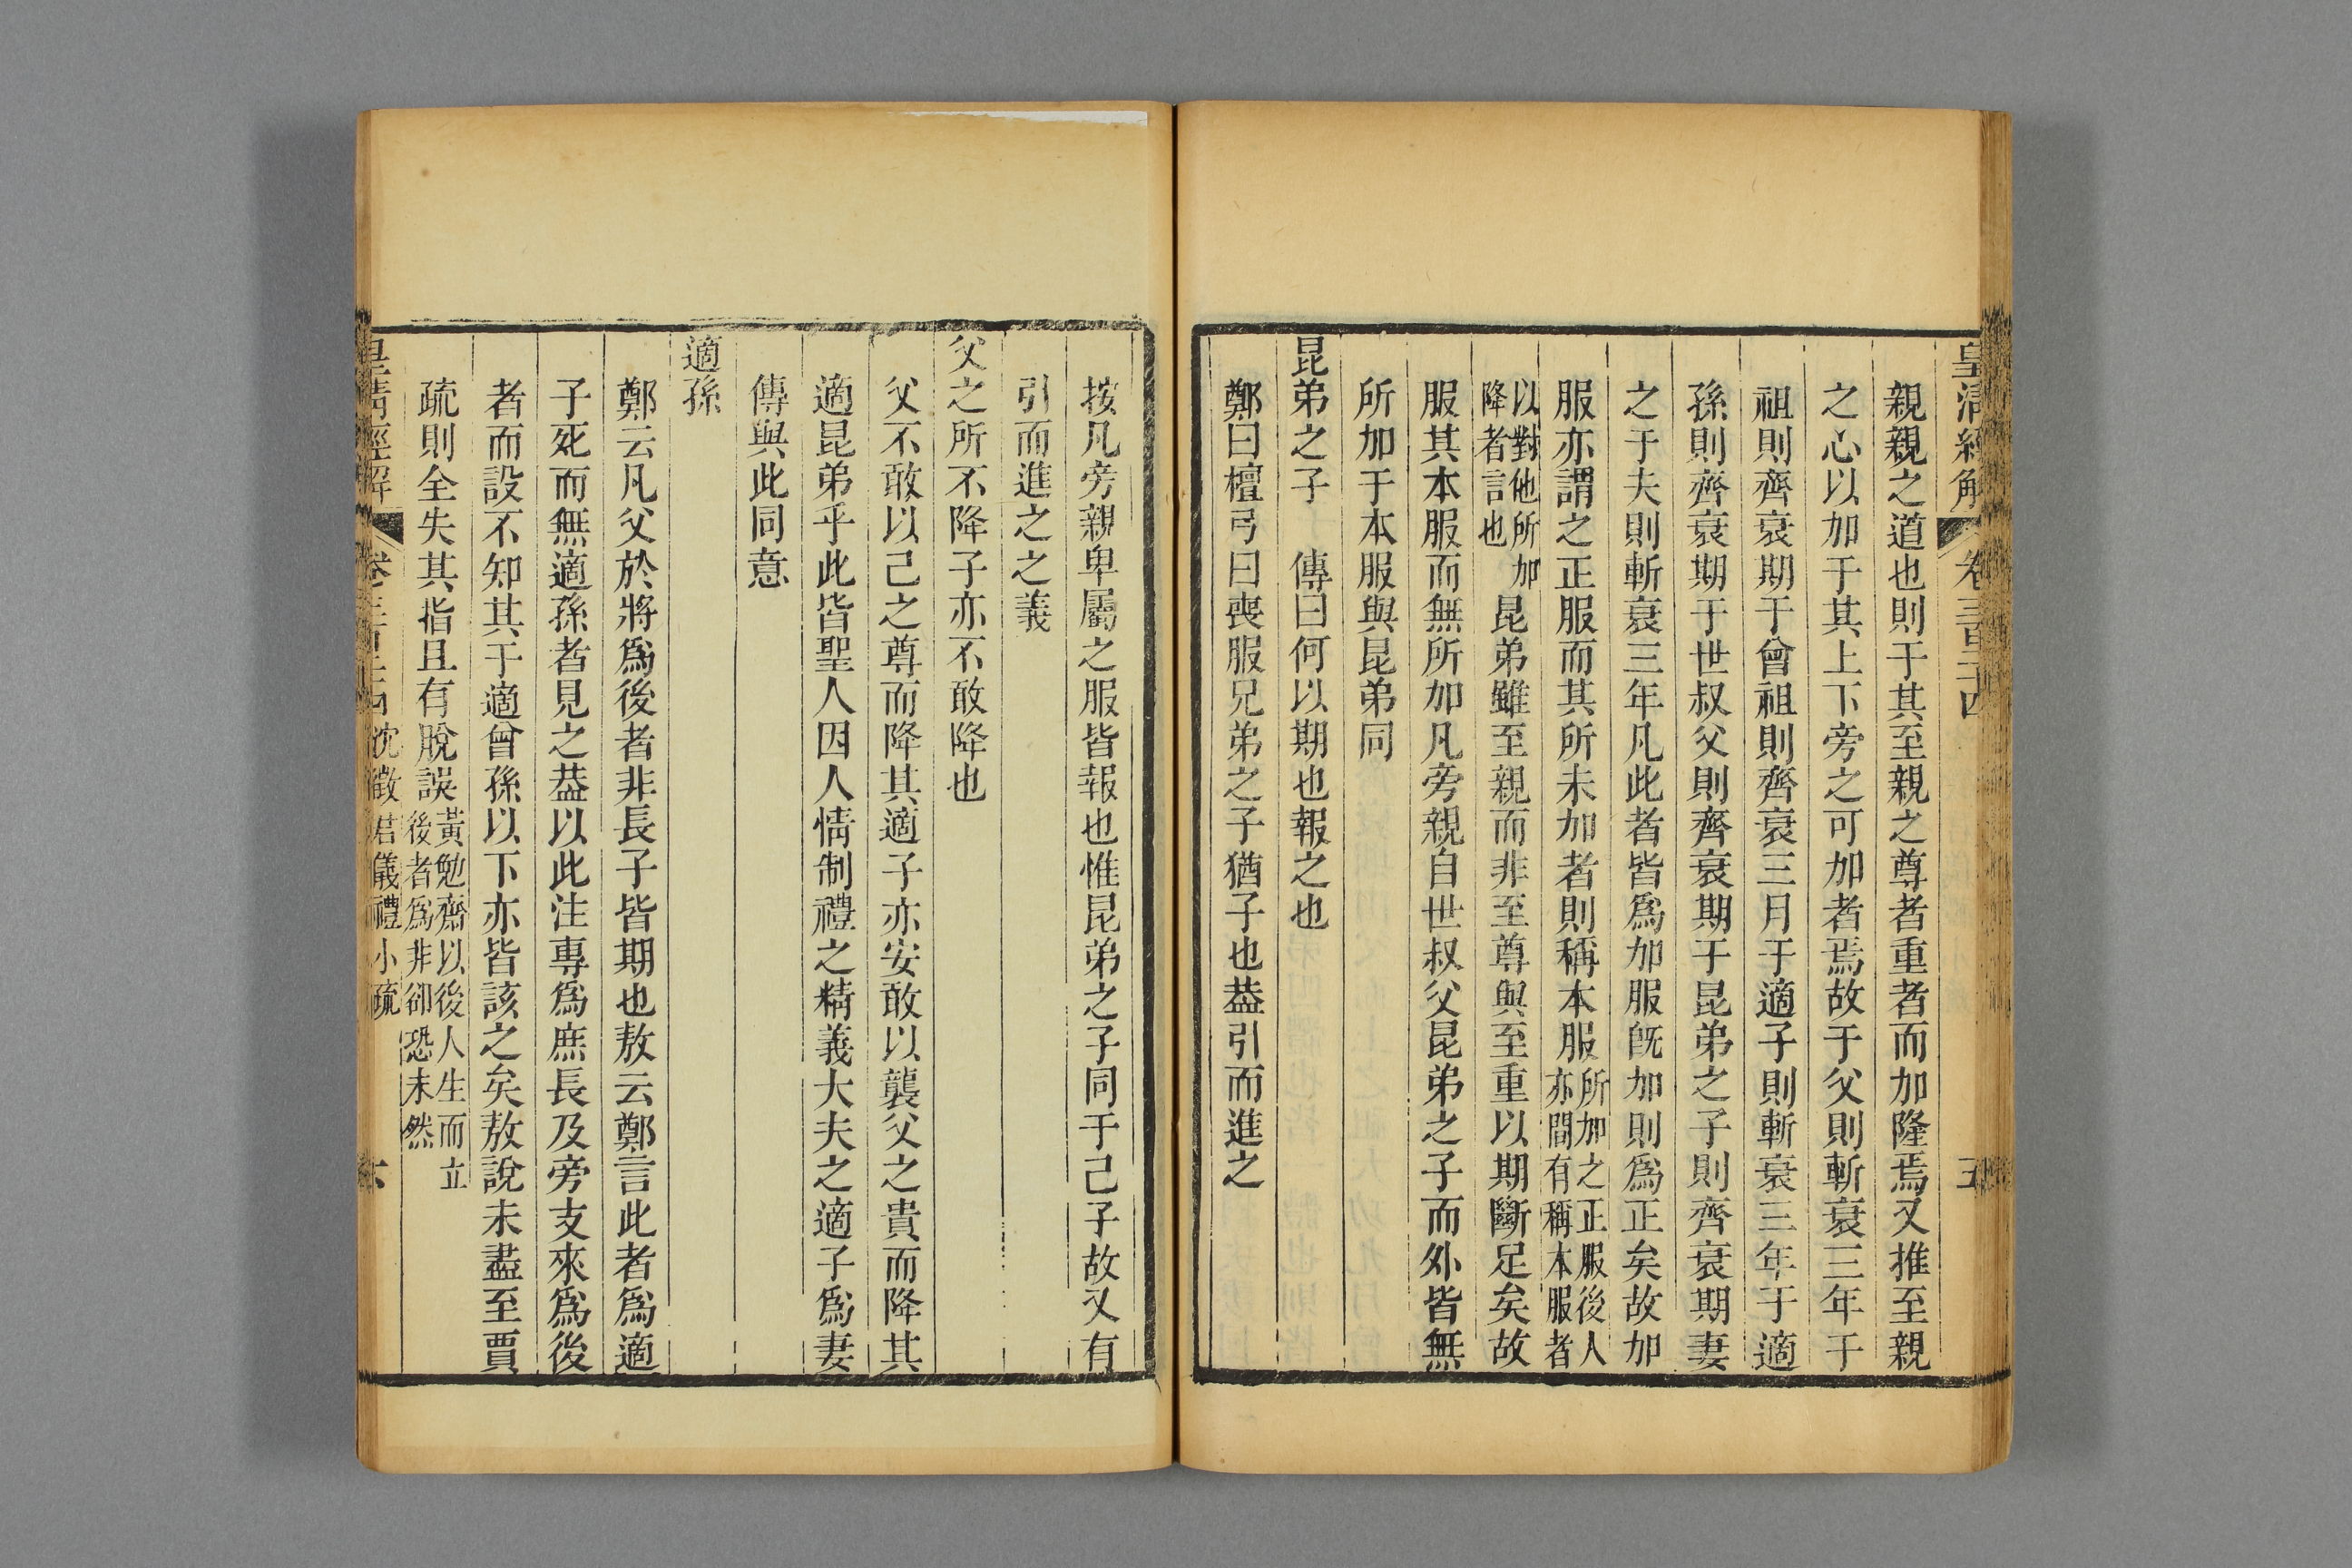 皇清經解 卷三百二十四 五
親親之道也則于其至親之尊者重者而加隆焉又推至親
之心以加于其上下旁之可加者焉故于父則斬衰三年于
祖則齊衰期于曾祖則齊衰三月于適子則斬衰三年于適
孫則齊衰期于世叔父則齊衰期于昆弟之子則齊衰期妻
之于夫則斬衰三年凡此者皆爲加服旣加則爲正矣故加
服亦謂之正服而其所未加者則稱本服所加之正服後人亦間有稱本服者
以對他所加降者言也昆弟雖至親而非至尊與至重以期斷足矣故
服其本服而無所加凡旁親自世叔父昆弟之子而外皆無
所加于本服與昆弟同
昆弟之子 傳曰何以期也報之也
鄭曰檀弓曰喪服兄弟之子猶子也葢引而進之
按凡旁親卑屬之服皆報也惟昆弟之子同于己子故又有
引而進之之義
父之所不降子亦不敢降也
父不敢以己之尊而降其適子亦安敢以襲父之貴而降其
適昆弟乎此皆聖人因人情制禮之精義大夫之適子爲妻
傳與此同意
適孫
鄭云凡父於將爲後者非長子皆期也敖云鄭言此者爲適
子死而無適孫者見之葢以此注專爲庶長及旁支來爲後
者而設不知其于適曾孫以下亦皆該之矣敖說未盡至賈
疏則全失其指且有脫誤黃勉齋以後人生而立後者爲非卻恐未然
皇清經解 卷三百二十四 沈徵君儀禮小疏 六